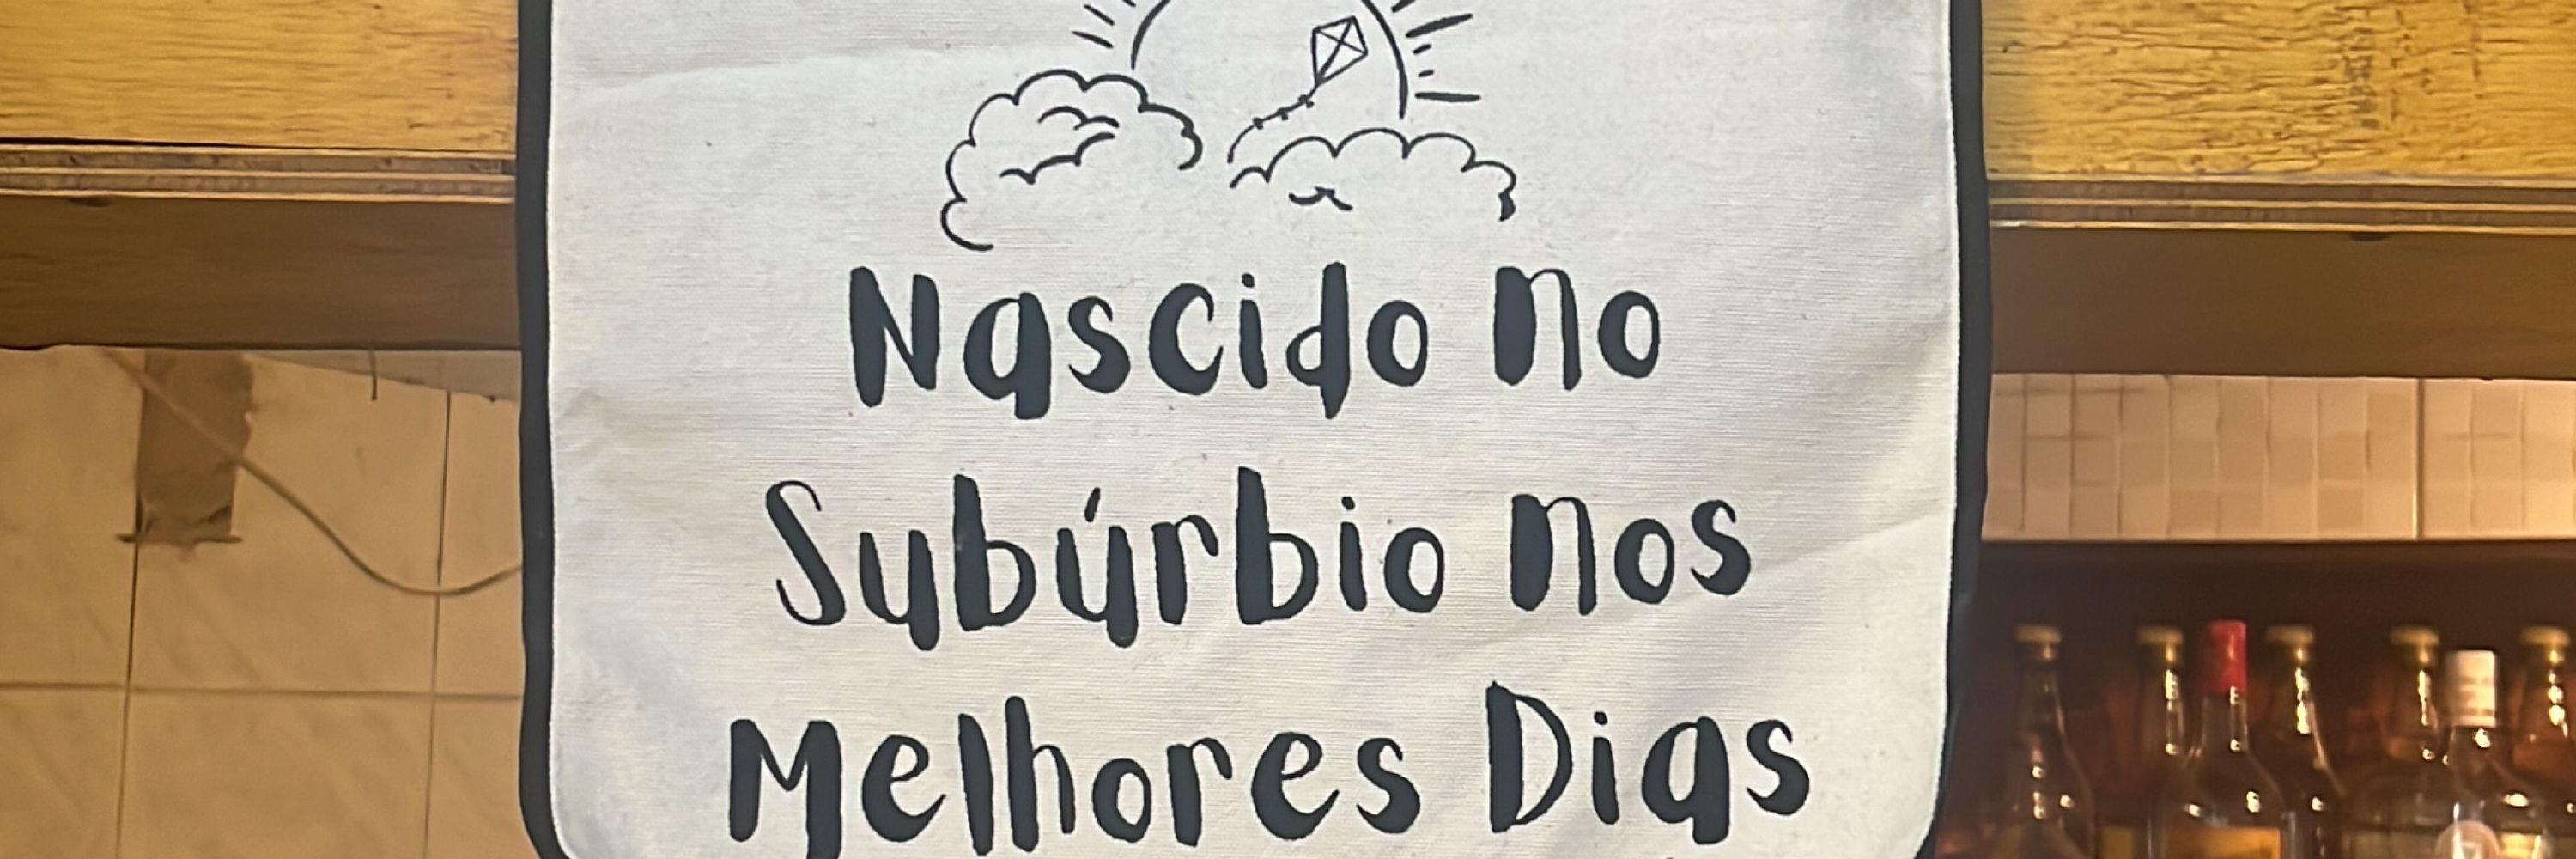 Nascido no
Subúrbio nos
Melhores Dias